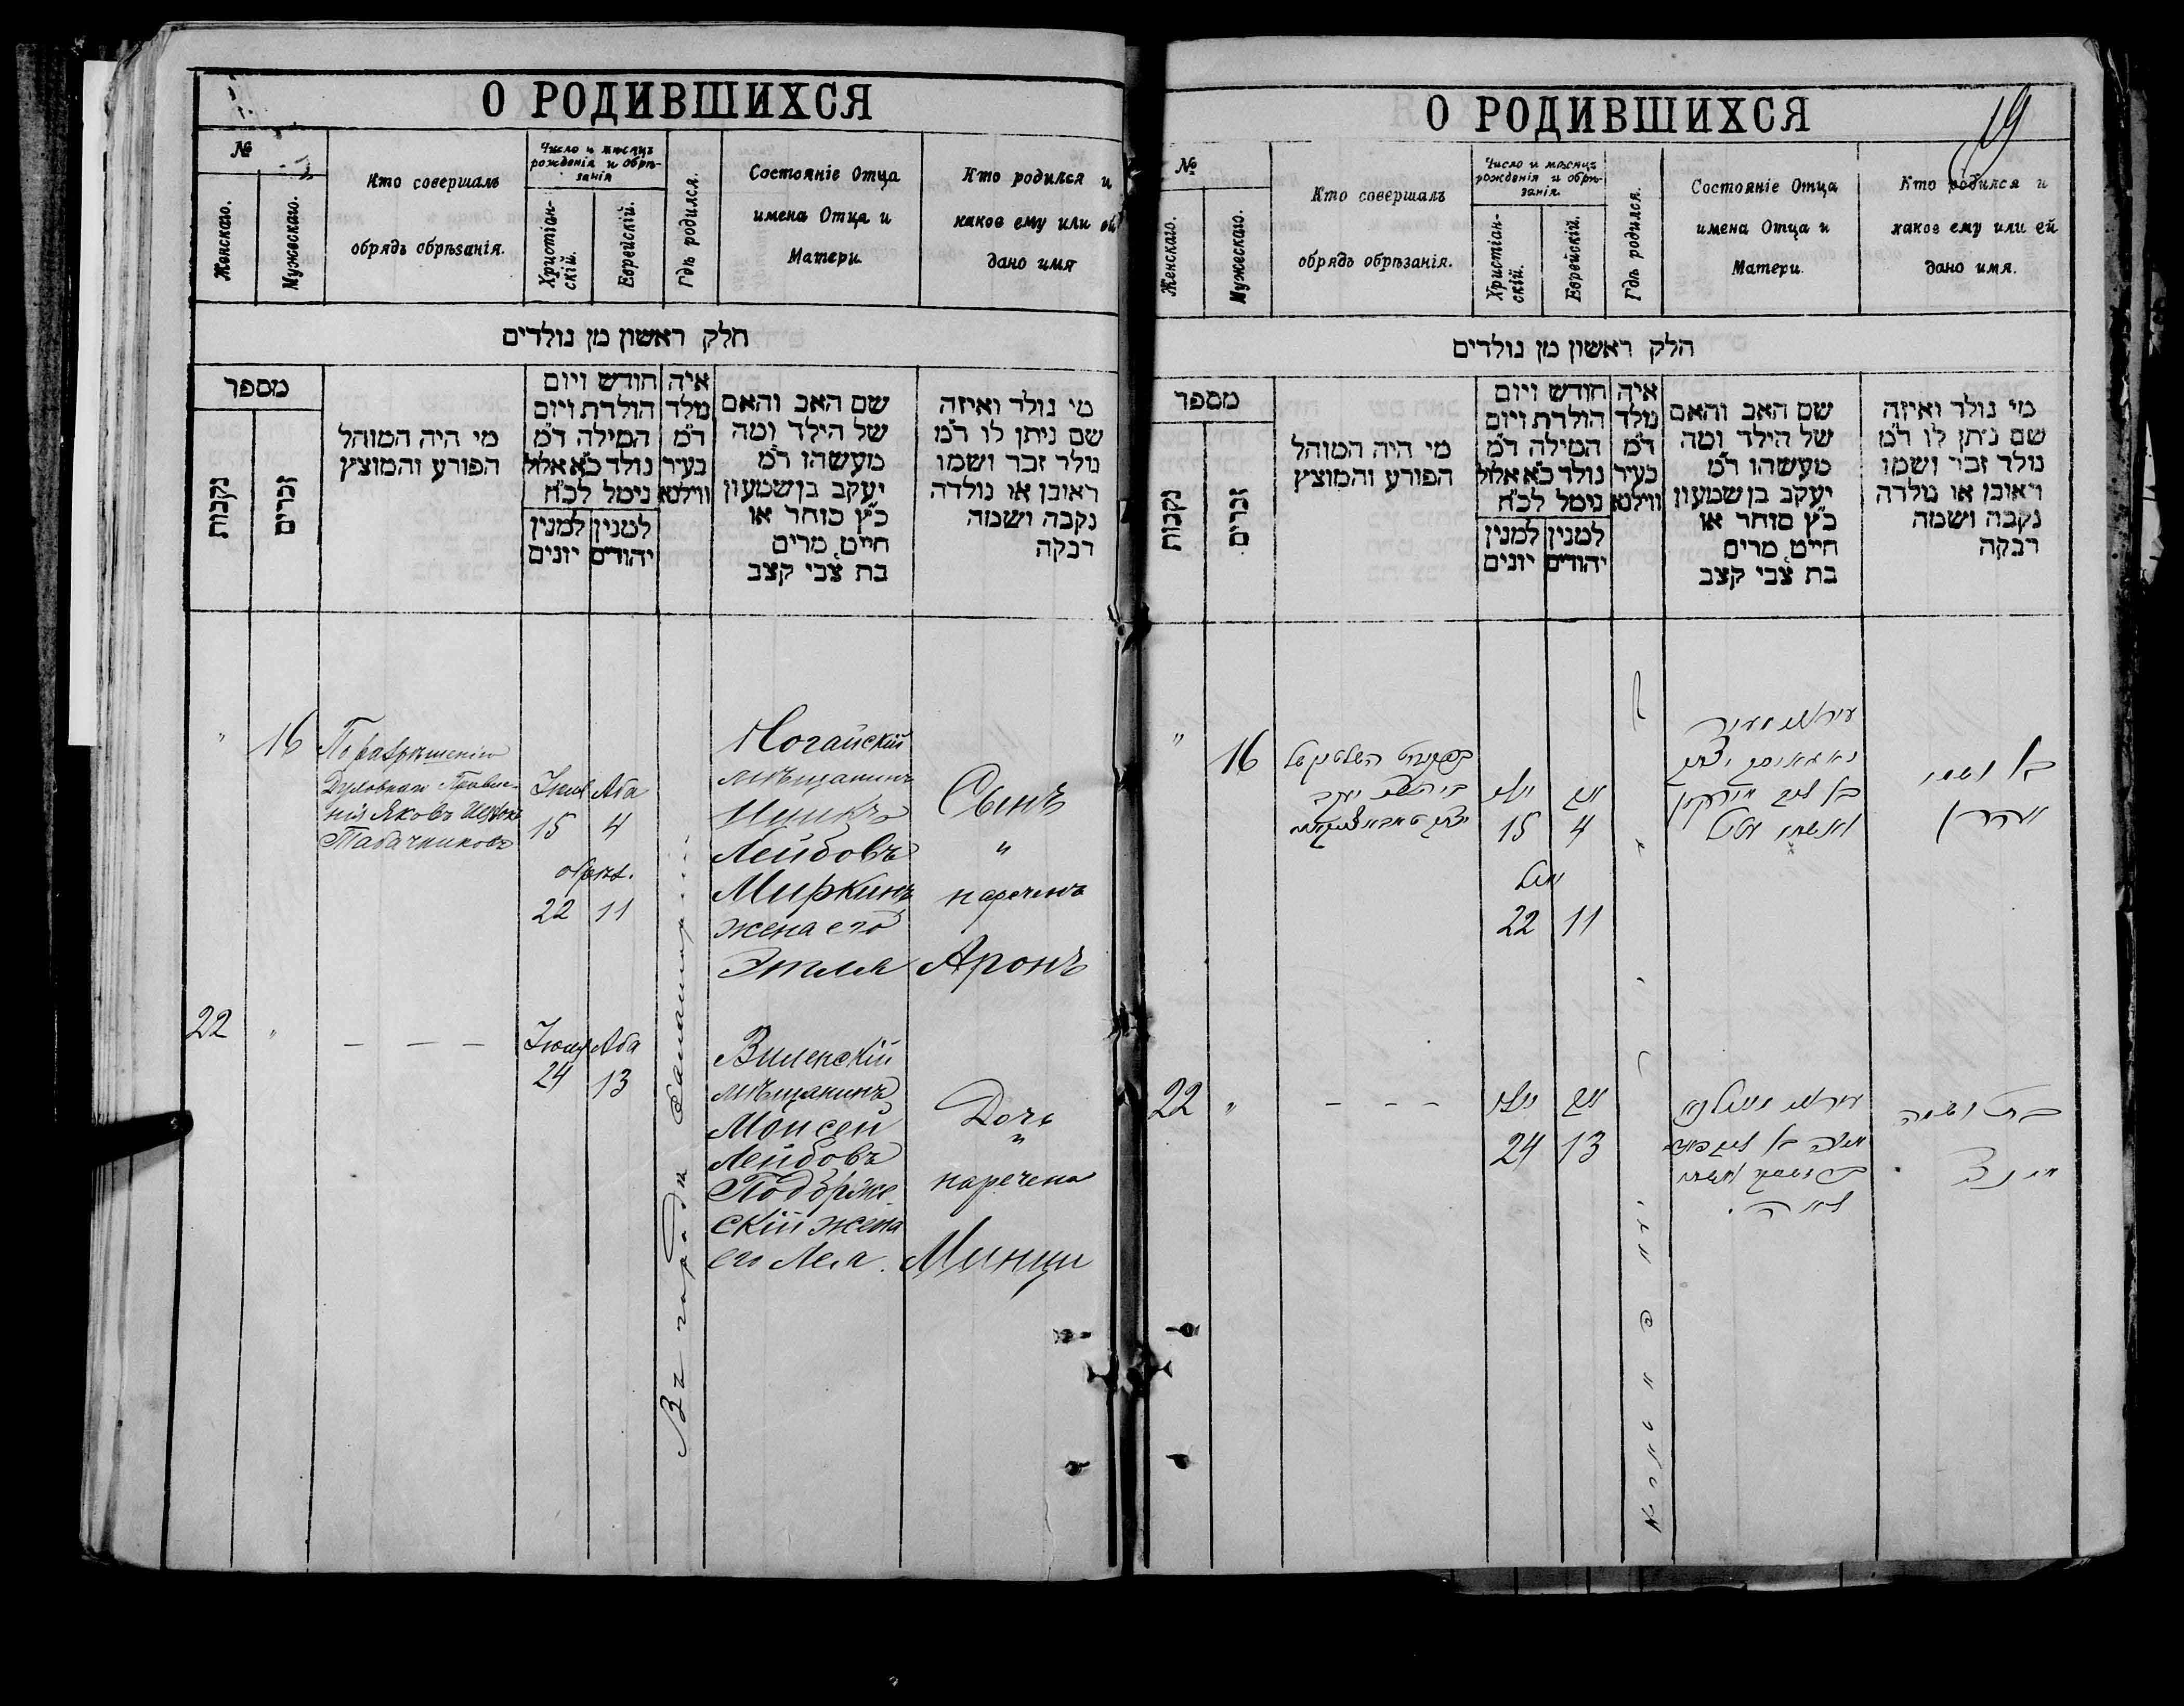 О РОДИВШИХСЯ
№
Женскаго.
Мужескаго.
Кто совершалъ
обрядъ обрѣзанія.
Число и мѣсяцъ
рожденія и обрѣ-
занія
Христіан-
скій.
Еврейскій.
Гдѣ родился.
Состояніе Отца
имена Отца и
Матери.
Кто родился и
какое ему или ей
дано имя
חלק ראשון מן נולדים
מספר
נקבות
זכרים
מי היה המוהל
הפורע והמוצץ
חודש ויום
הולדת ויום
המילה ד״מ
נולד כ״א אלול
נימל לכ״ח
למנין
יונים
למנין
יהודים
איה
מלד
ד״מ
בעיר
ווילנא
שם האב והאם
של הילד ומה
מעשהו ד״מ
יעקב בן שמעון
כ״ץ סוחר או
חייט מרים
בת צבי קצב
מי נולד ואיזה
שם ניתן לו ד״מ
נולד זכר ושמו
ראובן או נולדה
נקבה ושמה
רבקה
"
16
По разрѣшенію
Духовнаго Правле-
нія Яковъ
Табачниковъ
Іюля Ава
15 4
обрѣз.
22 11
Ногайскій
мѣщанинъ
Ицикъ
Лейбовъ
Миркинъ
жена его
Этля
Сынъ
"
нареченъ
Аронъ
Въ городѣ
22
"
— — —
Іюля Ава
24 13
Виленскій
мѣщанинъ
Моисей
Лейбовъ
Подбрже
скій жена
его Лея.
Дочь
"
наречена
Минци
19
О РОДИВШИХСЯ
№
Женскаго.
Мужескаго.
Кто совершалъ
обрядъ обрѣзанія.
Число и мѣсяцъ
рожденія и обрѣ-
занія.
Христіан-
скій.
Еврейскій.
Гдѣ родился.
Состояніе Отца
имена Отца и
Матери.
Кто родился и
какое ему или ей
дано имя.
הלק ראשון מן נולדים
מספר
נקבות
זכרים
מי היה המוהל
הפורע והמוצץ
חודש ויום
הולדת ויום
המילה ד״מ
נולד כ״א אלול
נימל לכ״ח
למנין
יונים
למנין
יהודים
איה
מלד
ד״מ
בעיר
ווילנא
שם האב והאם
של הילד ומה
מעשהו ד״מ
יעקב בן שמעון
כ״ץ סוחר או
חייט מרים
בת צבי קצב
מי נולד ואיזה
שם ניתן לו ד״מ
נולד זכר ושמו
ראובן או נולדה
נקבה ושמה
רבקה
"
16
יולי אב
15 4
נימול
22 11
יצחק
בן ליב מירקין
ואשתו עטיל
בן ושמו
אהרן
22
"
— — —
יולי אב
24 13
משה בן ליב
ואשתו
לאה.
בת ושמה
מינצי